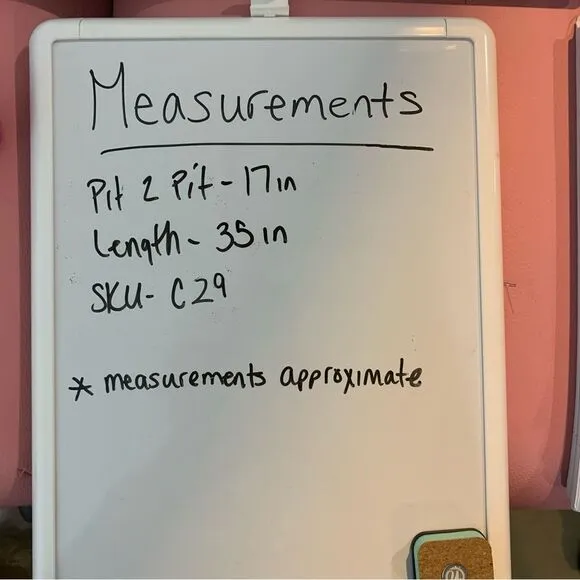 Measurements
Pit 2 Pit - 17in
Length - 35 in
SKU - C29
* measurements approximate